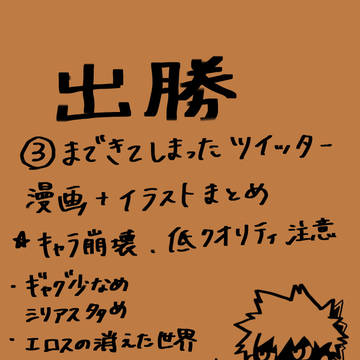 出勝
③まできてしまったツイッター
漫画+イラストまとめ
☆キャラ崩壊、低クオリティ注意
・ギャグ少なめ
ミリアス多め
・エロスの消えた世界